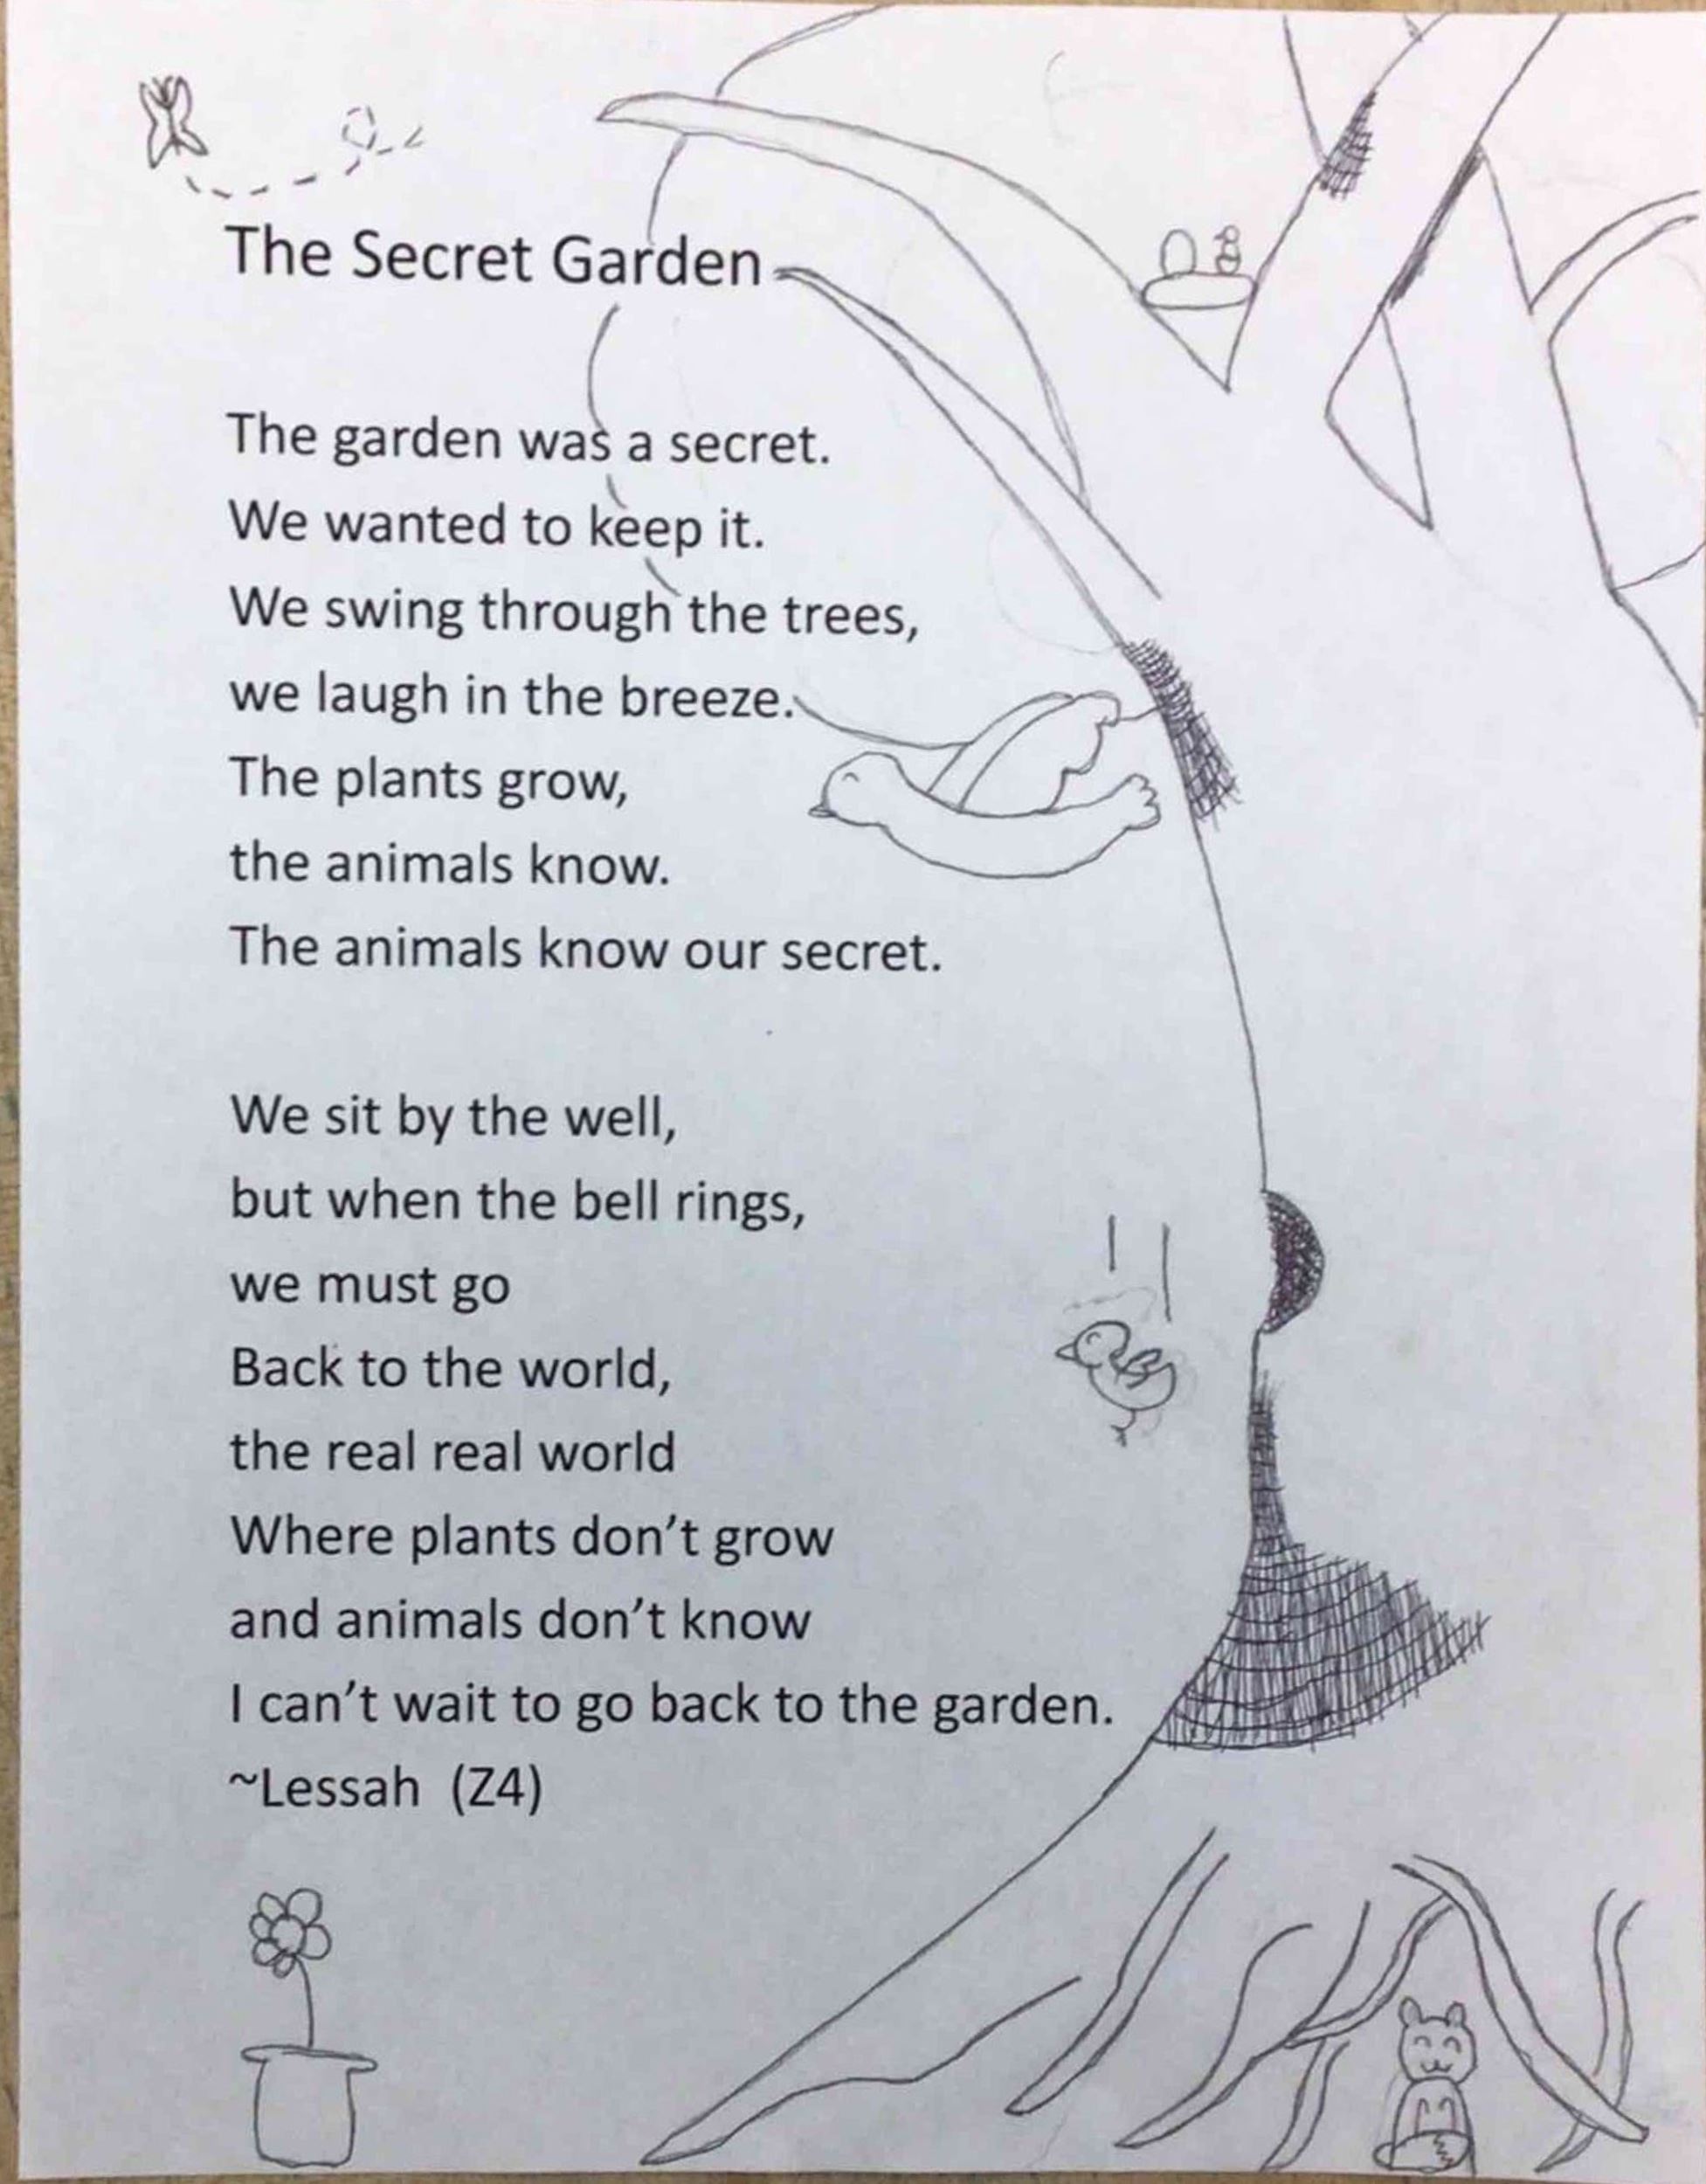 The Secret Garden
The garden was a secret.
We wanted to keep it.
We swing through the trees,
we laugh in the breeze.
The plants grow,
the animals know.
The animals know our secret.
We sit by the well,
but when the bell rings,
we must go
Back to the world,
the real real world
Where plants don't grow
and animals don't know
I can't wait to go back to the garden.
~Lessah (Z4)